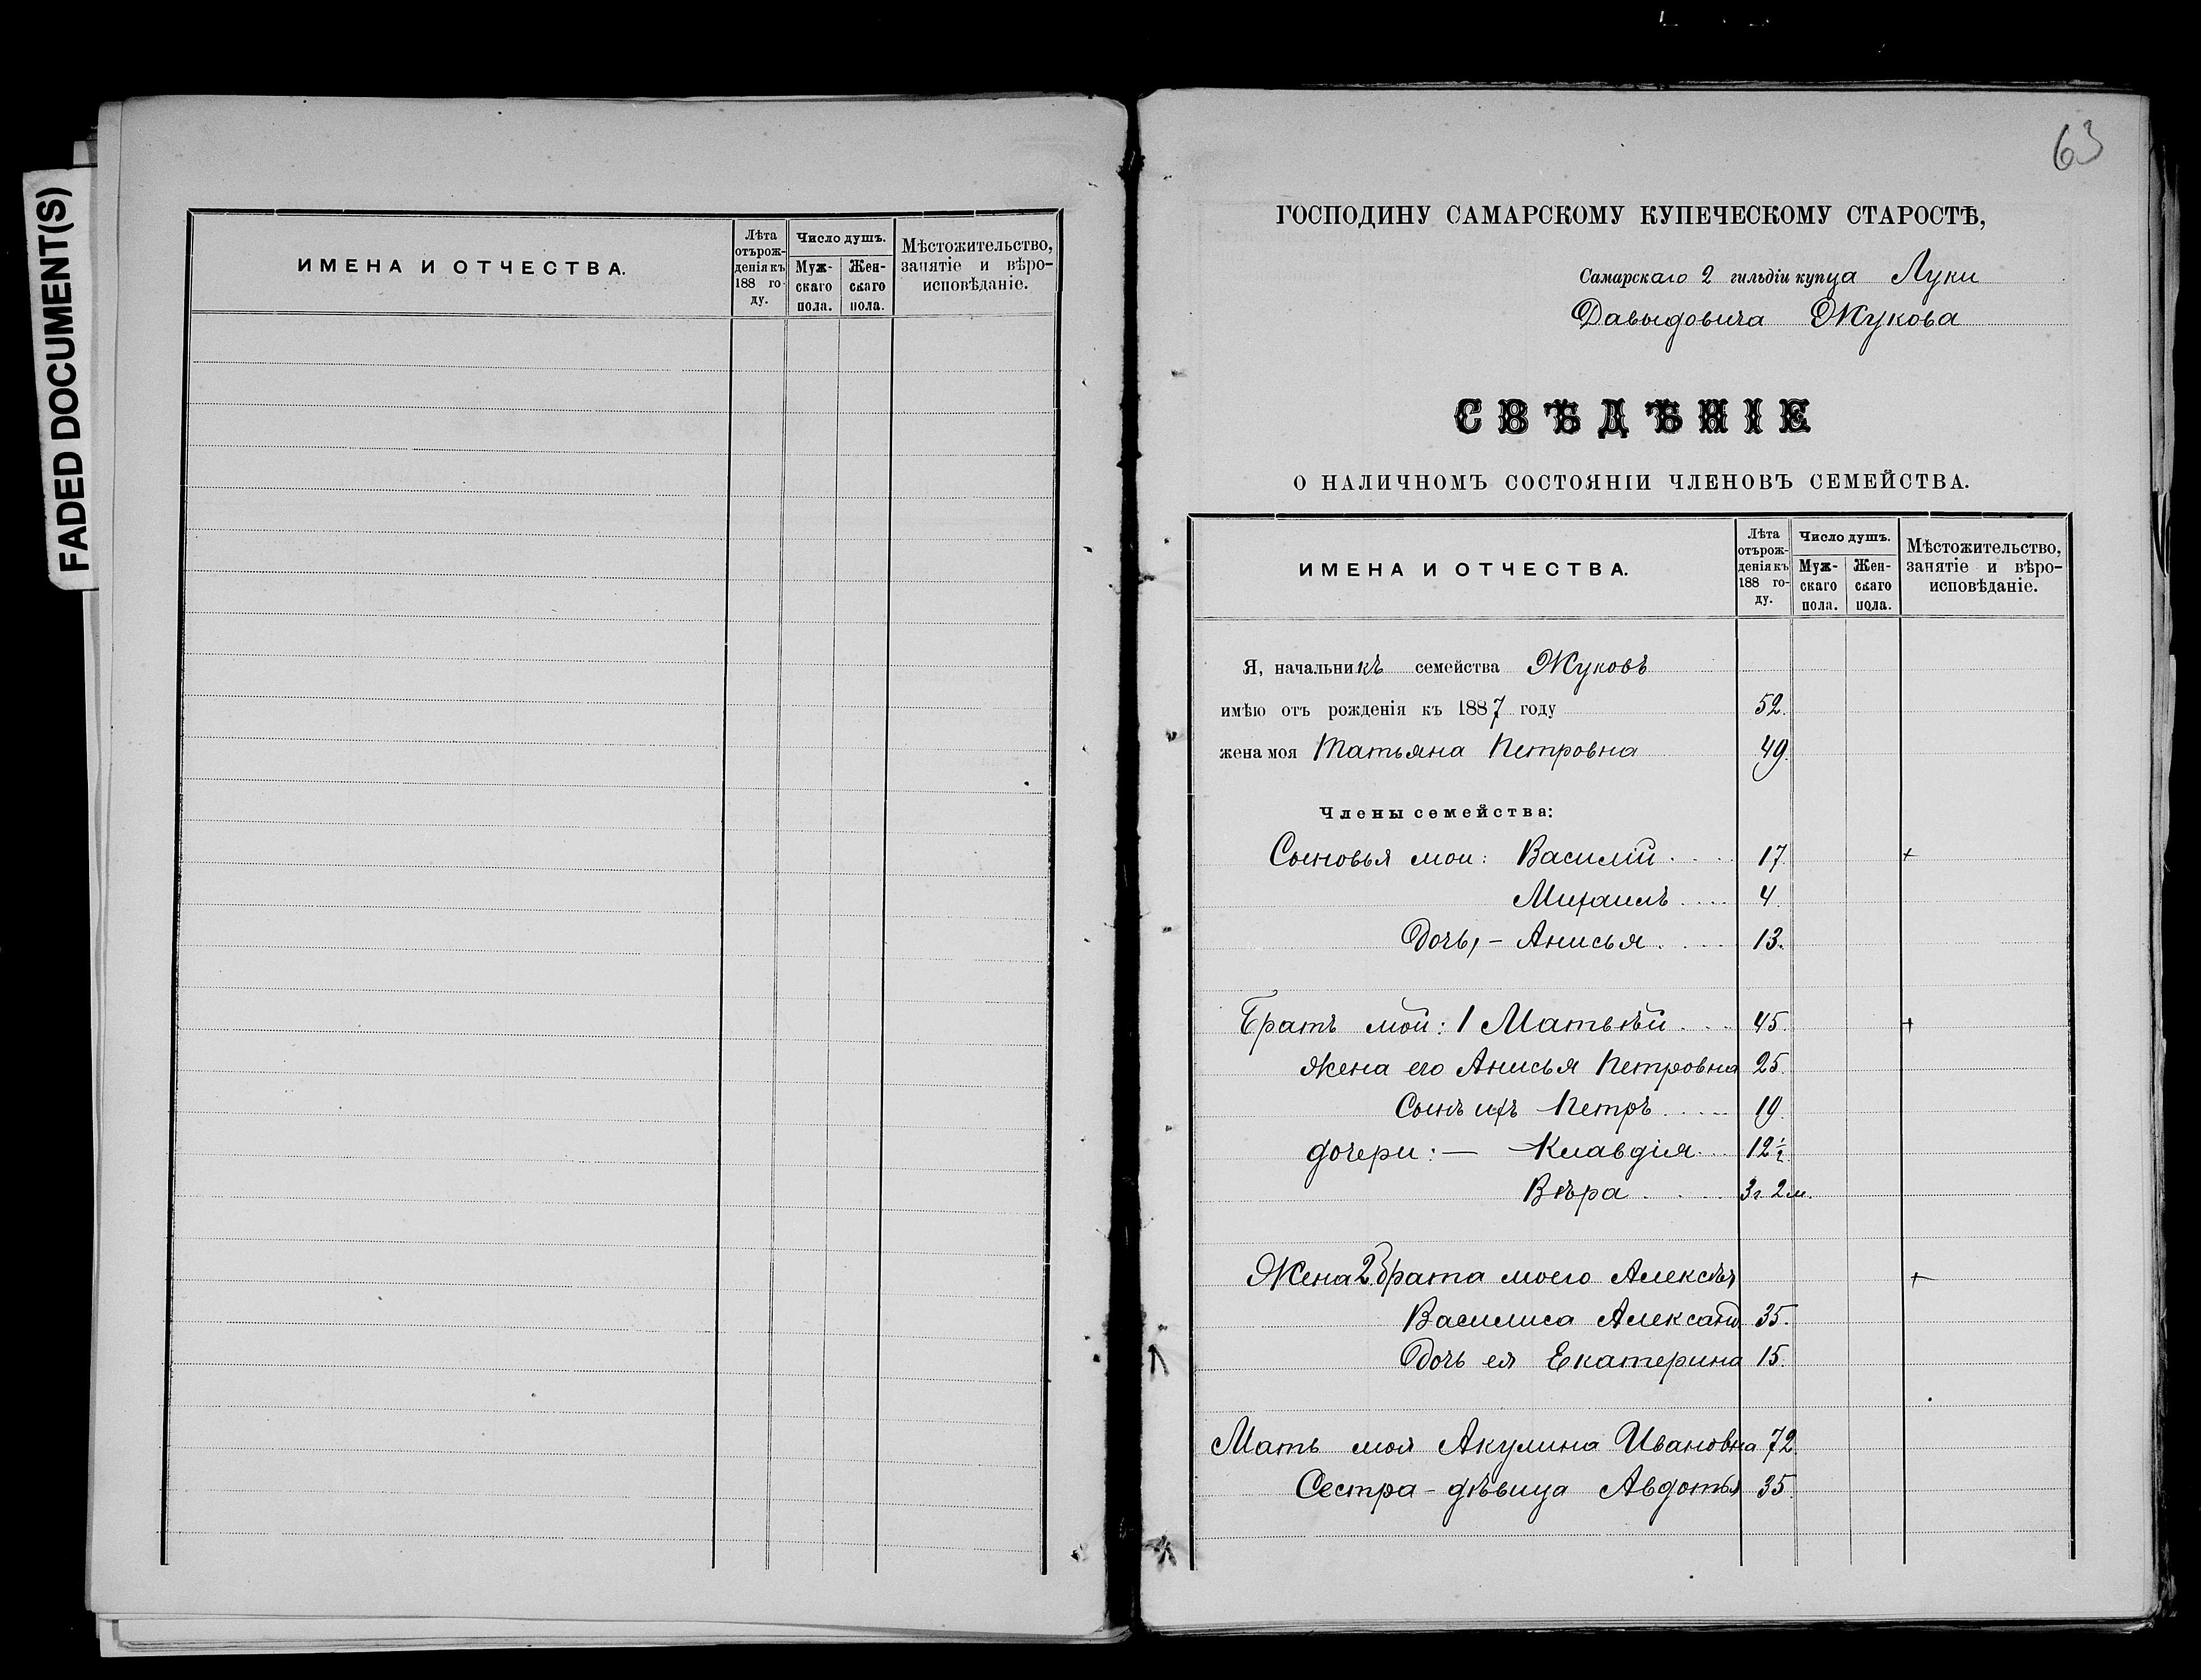 FADED DOCUMENT(S)
ИМЕНА И ОТЧЕСТВА.
Лѣта отърож- денія къ 188 го- ду.
Число душъ.
Муж- скаго пола.
Жен- скаго пола.
Мѣстожительство, занятіе и вѣро- исповѣданіе.
63
ГОСПОДИНУ САМАРСКОМУ КУПЕЧЕСКОМУ СТАРОСТѢ,
Самарскаго 2 гильдіи купца Луки
Давыдовича Жукова
СВѢДѢНІЕ
О НАЛИЧНОМЪ СОСТОЯНІИ ЧЛЕНОВЪ СЕМЕЙСТВА.
ИМЕНА И ОТЧЕСТВА.
Лѣта отърож- денія къ 188 го- ду.
Число душъ.
Муж- скаго пола.
Жен- скаго пола.
Мѣстожительство, занятіе и вѣро- исповѣданіе.
Я, начальникъ семейства Жуковъ
имѣю отъ рожденія къ 1887 году 52.
жена моя Татьяна Петровна 49.
Члены семейства:
Сыновья мои: Василій.... 17. +
Михаилъ.... 4.
Дочь, - Анисья.... 13.
Братъ мой: 1 Матвѣй.... 45. +
Жена его Анисья Петровна 25.
Сынъ ихъ Петръ.... 19.
дочери: — Клавдія... 12 ½
Вѣра.... 3 г 2 м.
Жена 2 брата моего Алексѣя +
Василиса Александ. 35.
Дочь ея Екатерина 15.
Мать моя Акулина Ивановна 72.
Сестра - дѣвица Авдотья 35.